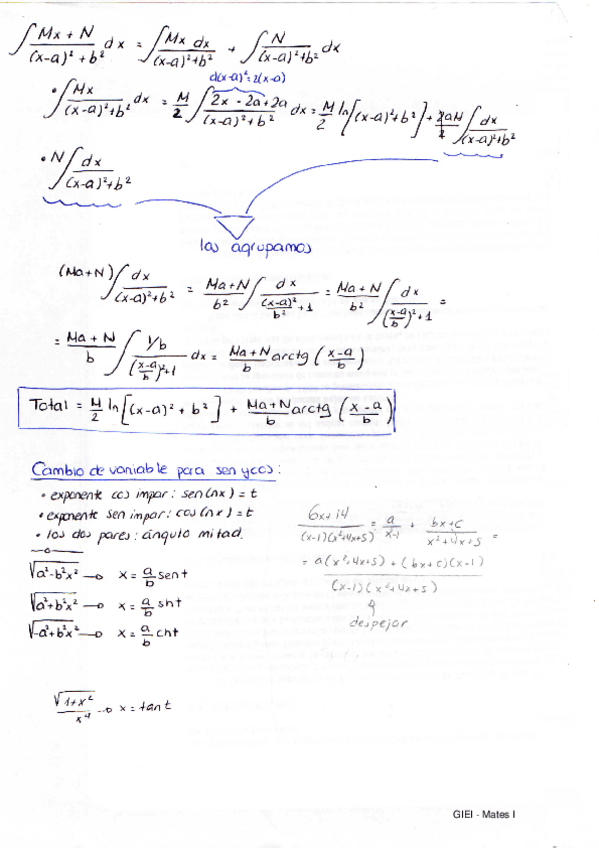 ∫ (Mx + N)/((x-a)² + b²) dx = ∫ (Mx dx)/((x-a)²+b²) + ∫ N/((x-a)²+b²) dx
d(x-a)² = 2(x-a)
• ∫ Mx/((x-a)²+b²) dx = M/2 ∫ (2x - 2a + 2a)/((x-a)²+b²) dx = M/2 ln[(x-a)²+b²] + 2aM/2 ∫ dx/((x-a)²+b²)
• N ∫ dx/((x-a)²+b²)
las agrupamos
(Ma+N) ∫ dx/((x-a)²+b²) = (Ma+N)/b² ∫ dx/((x-a)²/b² + 1) = (Ma+N)/b² ∫ dx/(((x-a)/b)²+1) =
= (Ma + N)/b ∫ (1/b)/(((x-a)/b)²+1) dx = (Ma+N)/b arctg ((x-a)/b)
Total = M/2 ln[(x-a)² + b²] + (Ma+N)/b arctg ((x-a)/b)
Cambio de variable para sen y cos:
• exponente cos impar: sen(nx) = t
• exponente sen impar: cos(nx) = t
• los dos pares: ángulo mitad.
√(a²-b²x²) → x = a/b sen t
√(a²+b²x²) → x = a/b sht
√(-a²+b²x²) → x = a/b cht
(6x+14)/((x-1)(x²+4x+5)) = a/(x-1) + (bx+c)/(x²+4x+5) =
= (a(x²+4x+5) + (bx+c)(x-1))/((x-1)(x²+4x+5))
despejar
√(1+x²)/x⁴ → x = tan t
GIEI - Mates I